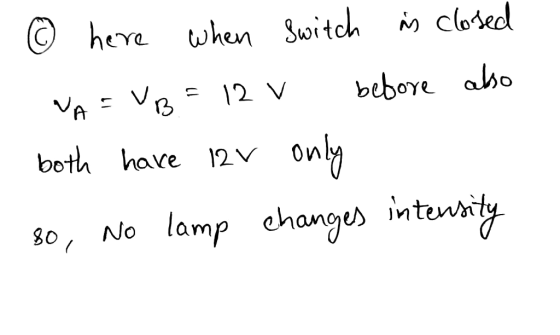 Ⓒ here when Switch is closed
V_A = V_B = 12 V before also
both have 12V only
so, No lamp changes intensity